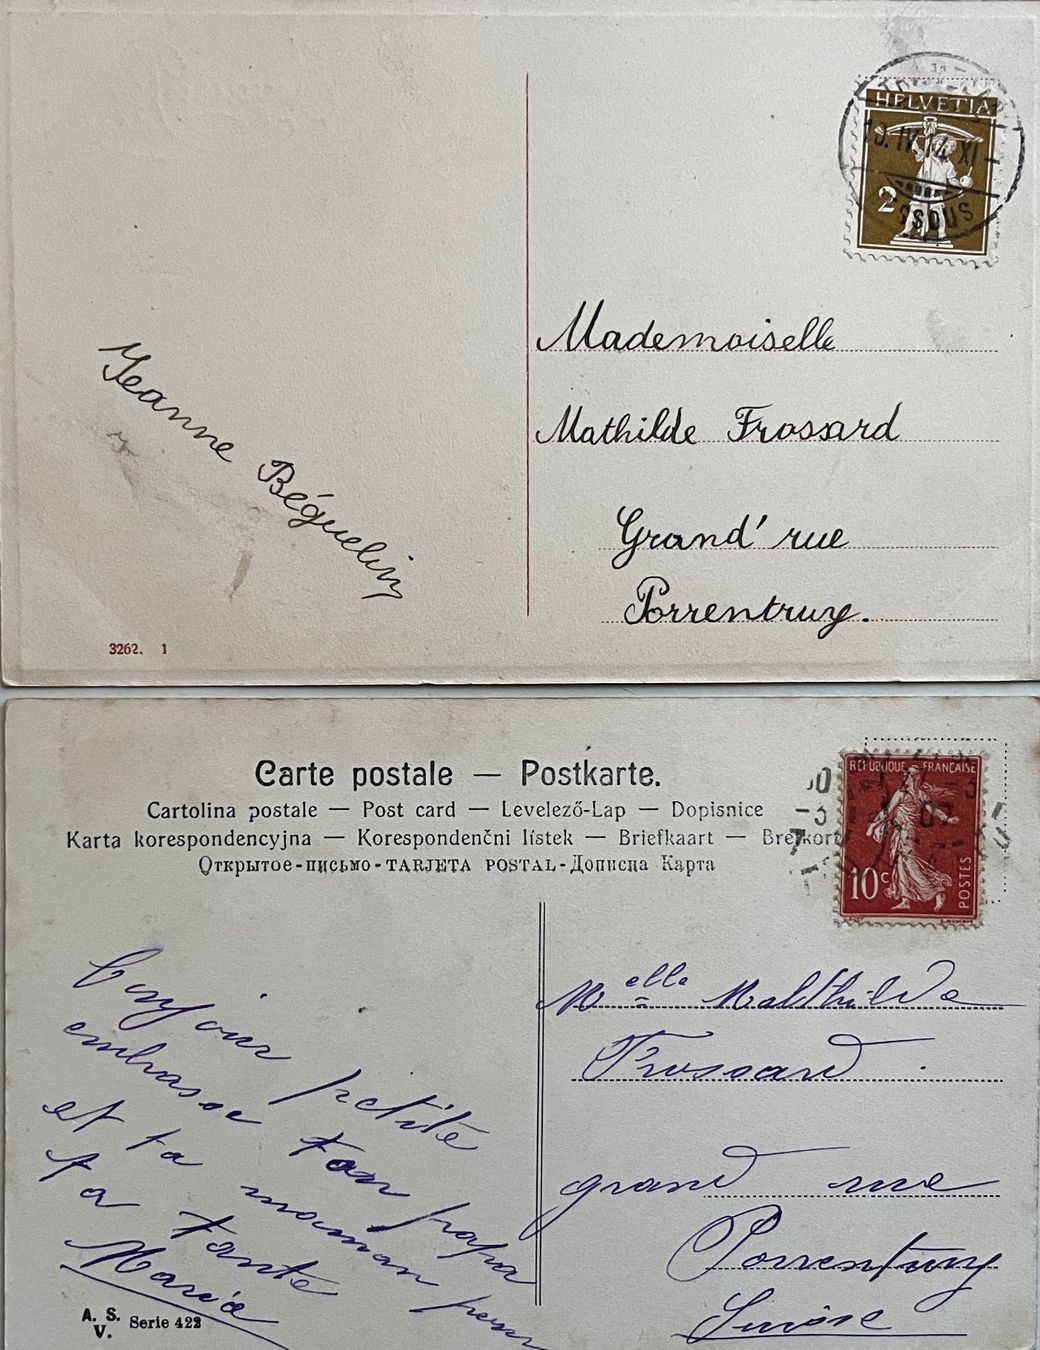 HELVETIA
10.IV.14 XI-
2
Mademoiselle
Mathilde Frossard
Grand' rue
Porrentruy.
Jeanne Béguelin
3262. 1
Carte postale — Postkarte.
Cartolina postale — Post card — Levelező-Lap — Dopisnice
Karta korespondencyjna — Korespondenční lístek — Briefkaart — Brevkort
Открытое-письмо-TARJETA POSTAL-Дописна Карта
REPUBLIQUE FRANÇAISE
10c
POSTES
Melle Malthilde
Frossard
grand rue
Porrentruy
Suisse
Bonjour petite
embrasse ton papa
et ta maman pour
ta tante
Maria
A. S.
V. Serie 422